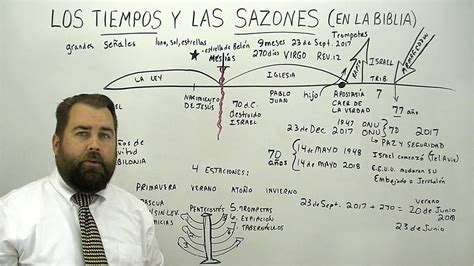 LOS TIEMPOS Y LAS SAZONES (EN LA BIBLIA)
grandes Señales luna, sol, estrellas
estrella de Belén
MESÍAS
9 meses 23 de Sept. 2017
270 días VIRGO REV. 12
Trompetas
RAPTO
ARMAGEDON
LA LEY
IGLESIA
ISRAEL
TRIB.
NACIMIENTO
DE JESÚS
70 d.C.
Destruido
ISRAEL
PABLO
JUAN
hijo
APOSTASÍA
CAER DE
LA VERDAD
7
77 año
1947 ONU 70
23 de Dec. 2017 ONU 2017
PAZ Y SEGURIDAD
70
años
14 de MAYO 1948 Israel comenzó (Tel Aviv)
14 de MAYO 2018 E.E.U.U. mudaron su
Embajada a Jerusalén
BILONIA
4 ESTACIONES:
PRIMAVERA VERANO OTOÑO INVIERNO
PENTECOSTÉS
5. TROMPETAS
6. EXPIACION
7. TABERNÁCULOS
verano
23 de Sept. 2017 + 270 = 20 de Junio
2018
23 de Junio